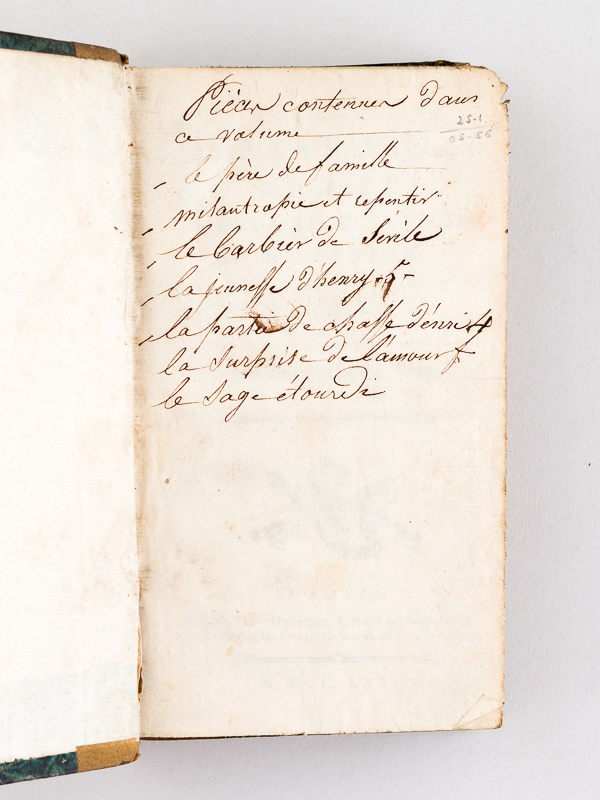 Pièces contenues dans
ce volume
25-1
05-56
le père de famille
misantropie et repentir
le barbier de Sévile
la jeunesse d'henry -5-
la partie de chasse d'énri 4
la surprise de l'amour
le sage étourdi